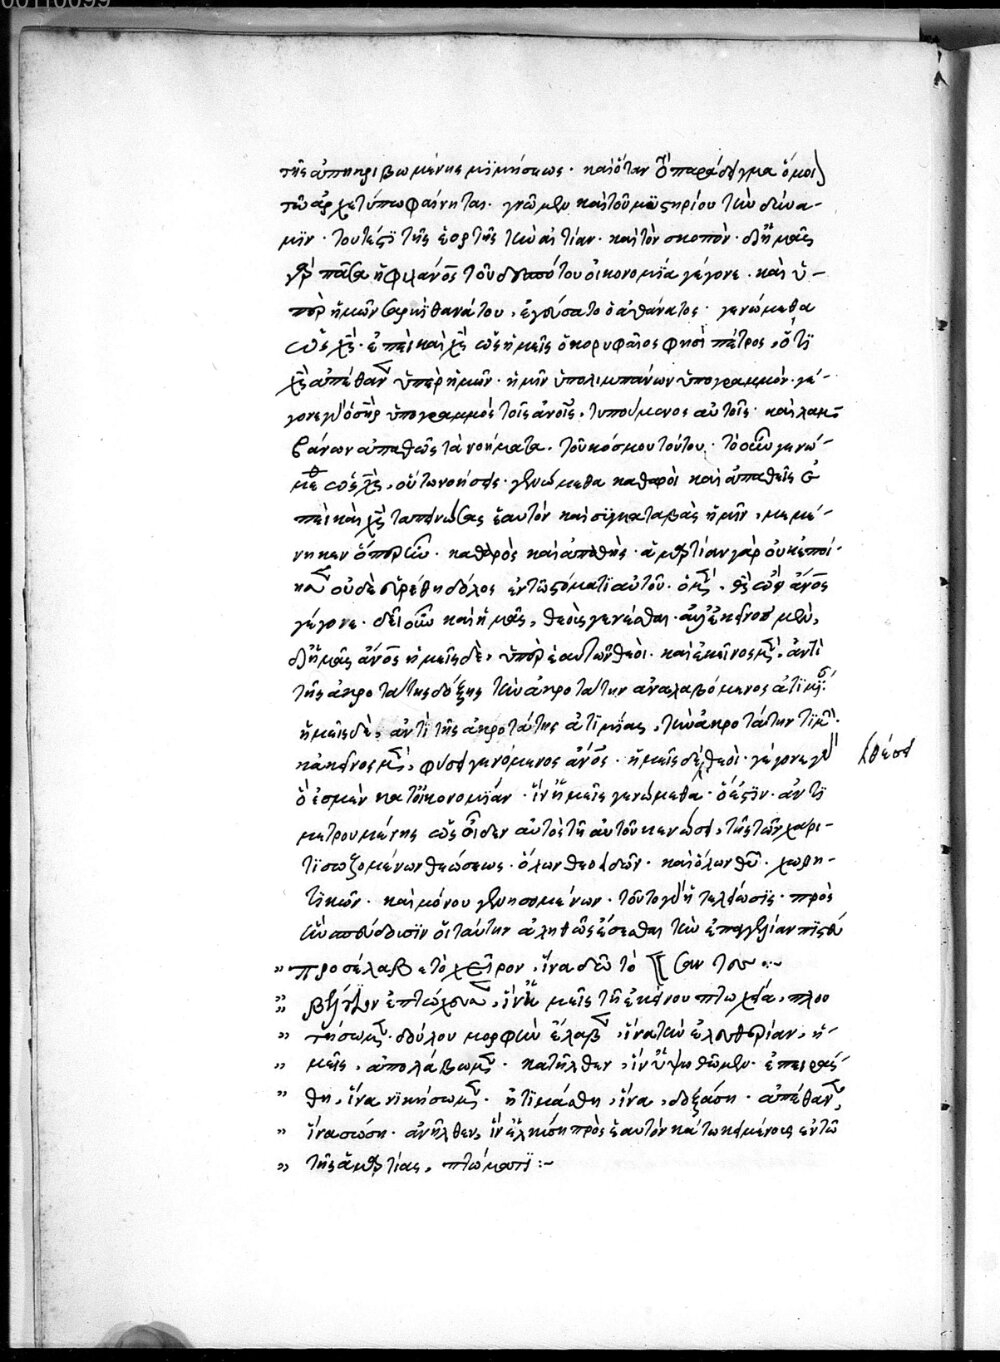 00110099
τῆς ἀπηκριβωμένης μϊμήσεως· καὶ ὅταν ὃ παράδειγμα ὅμοι
τῶ ἀρχετύπω φαίνηται· γνῶμεν καὶ τοῦ μϋστηρίου τὴν δύνα-
μϊν· τουτέστϊ τῆς ἑορτῆς τὴν αἰτίαν· καὶ τὸν σκοπὸν· δι' ἡμᾶς
γὰρ πᾶσα ἡ φιλανος τοῦ δεσπότου οἰκονομία γέγονε· καὶ ὑ-
πὲρ ἡμῶν σαρκὶ θανάτου, ἐγεύσατο ὁ ἀθάνατος· γενώμεθα
ὡς χς· ἐπεὶ καὶ χς ὡς ἡμεῖς ὁ κορυφαῖος φησὶ πέτρος, ὅτϊ
χς ἀπέθανεν ὑπὲρ ἡμῶν· ἡμῖν ὑπολιμπάνων ὑπογραμμόν· γέ-
γονε γὰρ ὁ σηρ ὑπογραμμὸς τοῖς ανοις, τυπούμενος αὐτοῖς· καὶ λαμ-
βάνων ἀπαθῶς τὰ νοήματα· τοῦ κόσμου τούτου· τὸ οὖν γενώ-
μεθα ὡς χς, οὕτω νοήσεις· γενώμεθα καθαροὶ καὶ ἀπαθεῖς ἐ
πεὶ καὶ χς ταπεινώσας ἑαυτὸν καὶ συγκαταβὰς ἡμῖν, μεμέ-
νηκεν ὅπερ ἦν· καθαρὸς καὶ ἀπαθὴς· ἁμαρτίαν γὰρ οὐκ ἐποί-
ησεν οὐδὲ εὑρέθη δόλος ἐν τῶ στόματϊ αὐτοῦ· ὁ μὲν, θς ὢν ανος
γέγονε· δεῖ οὖν καὶ ἡμᾶς, θεοὺς γενέσθαι· ἀλλ' ἐκεῖνος μὲν,
δι' ἡμᾶς ανος ἡμεῖς δὲ, ὑπὲρ ἑαυτῶν θεοί· καὶ ἐκεῖνος μὲν, ἀντὶ
τῆς ἀκροτάτης δόξης τὴν ἀκροτάτην ἀναλαβόμενος ἀτιμϊαν·
ἡμεῖς δὲ, ἀντὶ τῆς ἀκροτάτης ἀτιμϊας, τὴν ἀκροτάτην τϊμὴν·
κἀκεῖνος μὲν, φύσει γενόμενος ανος· ἡμεῖς δὲ θεοὶ· γέγονε γὰρ θέσει
ὅ ἐσμὲν κατ' οἰκονομϊαν· ἵν' ἡμεῖς γενώμεθα· ὅ ἐστϊν· ἀντϊ
μετρουμένης ὡς οἶδεν αὐτὸς τῆ αὐτοῦ κενώσει, τῆς τῶν χάρι-
τϊ σωζομένων θεώσεως· ὅλων θεοειδῶν· καὶ ὅλων θῦ· χωρη-
τϊκῶν· καὶ μόνου γενησομένων· τοῦτο γὰρ ἡ τελείωσϊς· πρὸς
ἣν σπεύδουσϊν οἱ ταύτην ἀληθῶς ἔσεσθαι τὴν ἐπαγγελίαν πϊστεύ
„ προσέλαβε τὸ χεῖρον, ἵνα δῶ τὸ
„ βέλτϊον ἐπτώχευσεν, ἵν' ἡμεῖς τῆ ἐκείνου πτωχεία, πλου
„ τήσωμεν· δούλου μορφὴν ἔλαβεν, ἵνα τὴν ἐλευθερίαν, ἡ-
„ μεῖς, ἀπολάβωμεν· κατῆλθεν, ἵν' ὑψωθῶμεν· ἐπειράσ-
„ θη, ἵνα νϊκήσωμεν· ἠτϊμάσθη, ἵνα, δοξάση· ἀπέθανεν,
„ ἵνα σώση· ἀνῆλθεν, ἵν' ἑλκύση πρὸς ἑαυτὸν κάτω κειμένους ἐν τῶ
„ τῆς ἁμαρτίας, πτώματϊ :-